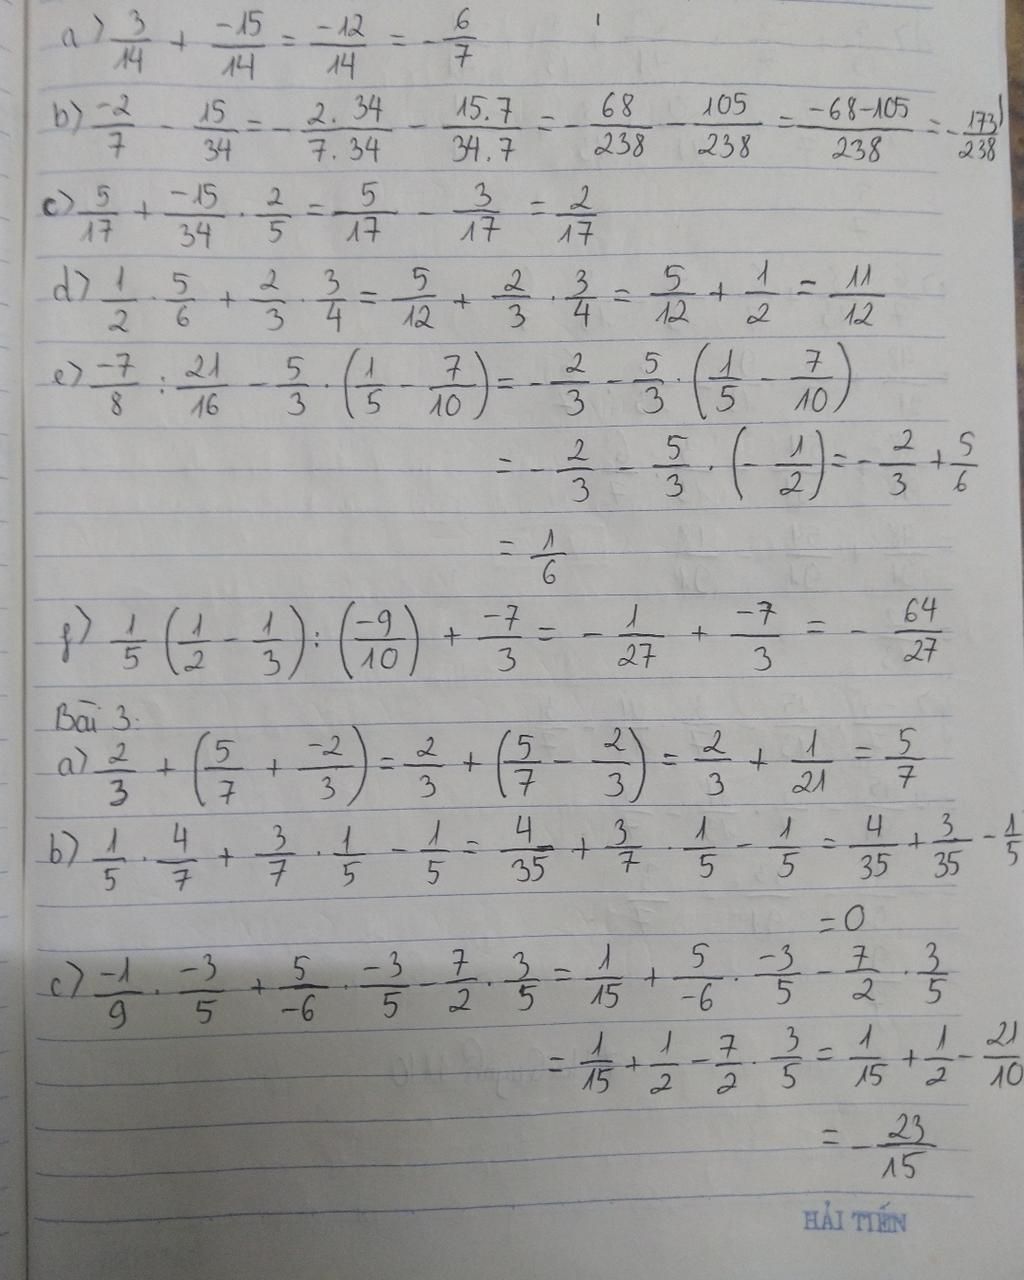 a) 3/14 + -15/14 = -12/14 = -6/7
b) -2/7 - 15/34 = -2.34/7.34 - 15.7/34.7 = -68/238 - 105/238 = -68-105/238 = -173/238
c) 5/17 + -15/34 . 2/5 = 5/17 - 3/17 = 2/17
d) 1/2 . 5/6 + 2/3 . 3/4 = 5/12 + 2/3 . 3/4 = 5/12 + 1/2 = 11/12
e) -7/8 : 21/16 - 5/3 . (1/5 - 7/10) = -2/3 - 5/3 . (1/5 - 7/10)
= -2/3 - 5/3 . (-1/2) = -2/3 + 5/6
= 1/6
f) 1/5 (1/2 - 1/3) : (-9/10) + -7/3 = -1/27 + -7/3 = -64/27
Bài 3:
a) 2/3 + (5/7 + -2/3) = 2/3 + (5/7 - 2/3) = 2/3 + 1/21 = 5/7
b) 1/5 . 4/7 + 3/7 . 1/5 - 1/5 = 4/35 + 3/7 . 1/5 - 1/5 = 4/35 + 3/35 - 1/5
= 0
c) -1/9 . -3/5 + 5/-6 . -3/5 - 7/2 . 3/5 = 1/15 + 5/-6 . -3/5 - 7/2 . 3/5
= 1/15 + 1/2 - 7/2 . 3/5 = 1/15 + 1/2 - 21/10
= -23/15
HẢI TIẾN